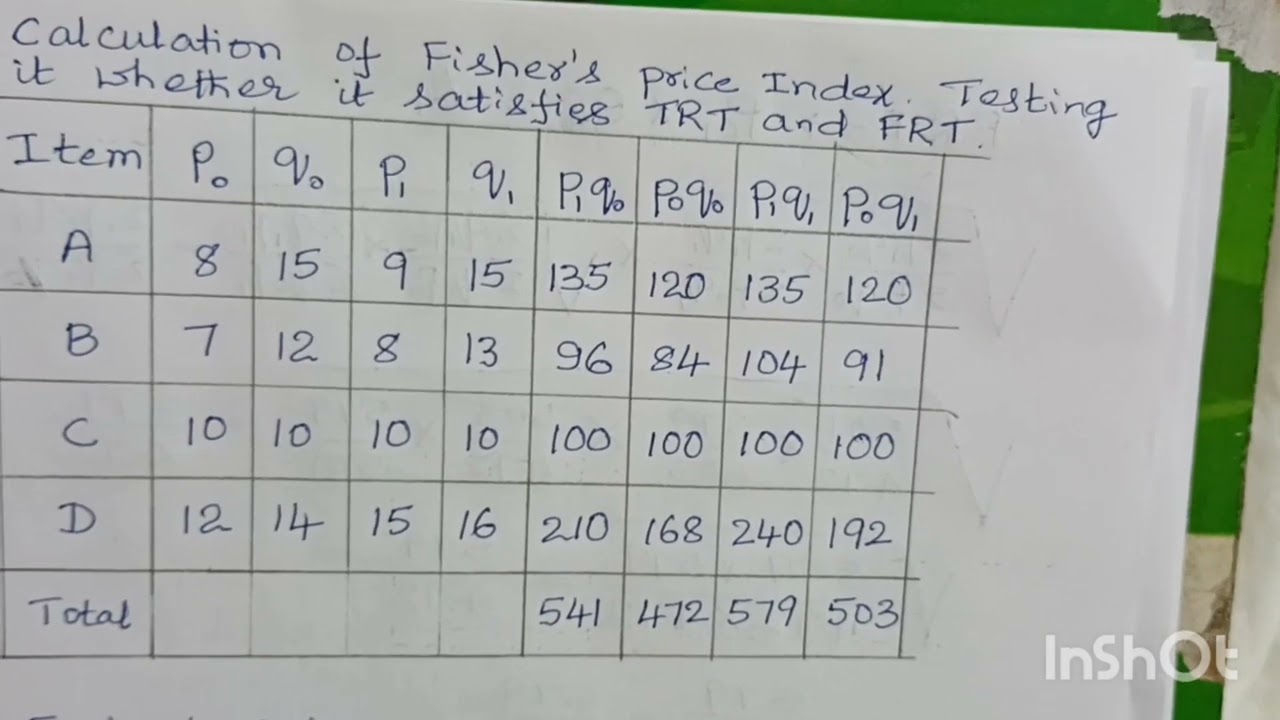 Calculation of Fisher's Price Index. Testing
it whether it satisfies TRT and FRT.
Item P₀ q₀ P₁ q₁ P₁q₀ P₀q₀ P₁q₁ P₀q₁
A 8 15 9 15 135 120 135 120
B 7 12 8 13 96 84 104 91
C 10 10 10 10 100 100 100 100
D 12 14 15 16 210 168 240 192
Total 541 472 579 503
InShOt